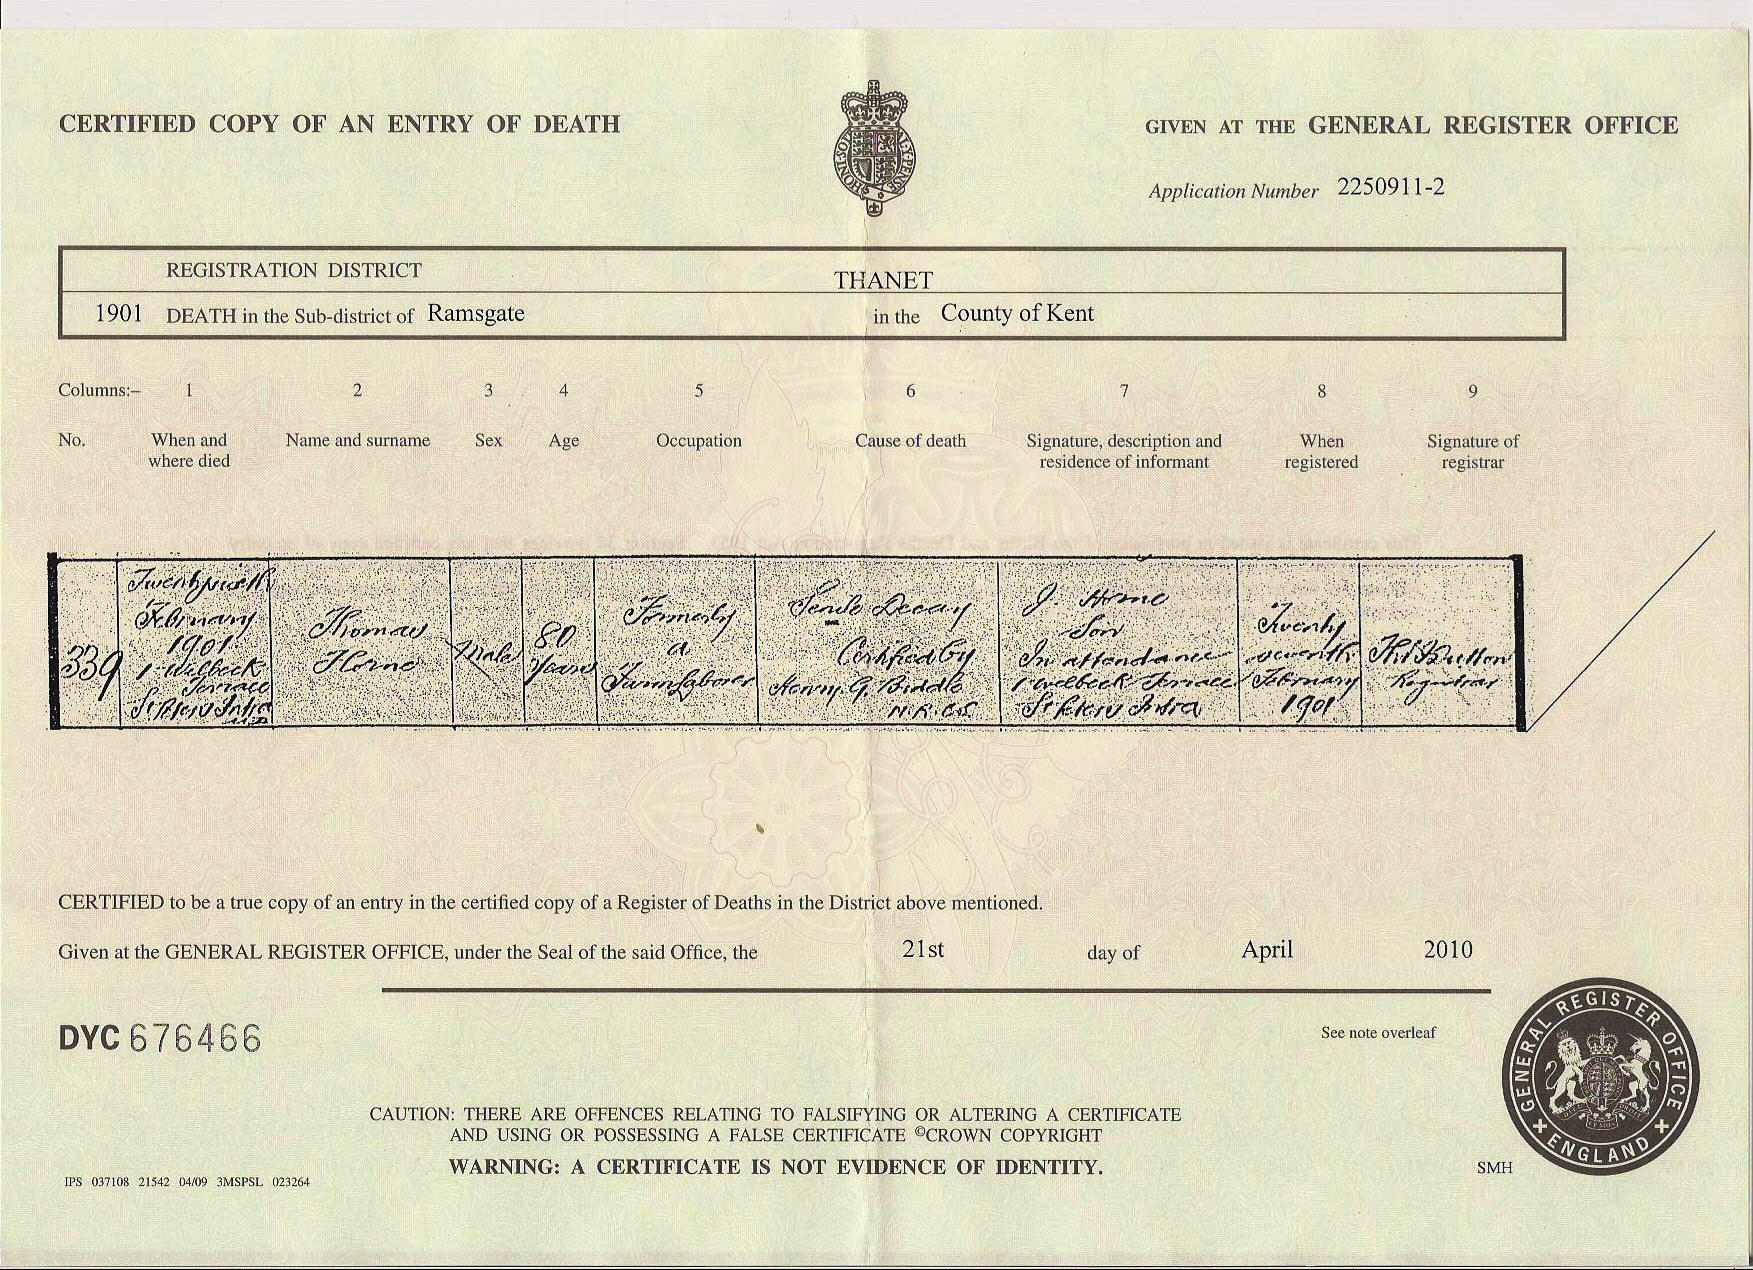 CERTIFIED COPY OF AN ENTRY OF DEATH
GIVEN AT THE GENERAL REGISTER OFFICE
Application Number 2250911-2
HONI·SOI
REGISTRATION DISTRICT THANET
1901 DEATH in the Sub-district of Ramsgate in the County of Kent
Columns:– 1 2 3 4 5 6 7 8 9
No. When and where died
Name and surname
Sex
Age
Occupation
Cause of death
Signature, description and residence of informant
When registered
Signature of registrar
339
February
1901
1 Welbeck
Terrace
Thomas
Horne
Male
80
Years
Formerly
a
Farm Laborer
Senile Decay
Certified by
Henry G. Biddle
M.R.C.S.
J. Horne
Son
In attendance
1 Welbeck Terrace
Twenty
seventh
February
1901
Registrar
CERTIFIED to be a true copy of an entry in the certified copy of a Register of Deaths in the District above mentioned.
Given at the GENERAL REGISTER OFFICE, under the Seal of the said Office, the 21st day of April 2010
DYC 676466
See note overleaf
GENERAL REGISTER OFFICE
ENGLAND
CAUTION: THERE ARE OFFENCES RELATING TO FALSIFYING OR ALTERING A CERTIFICATE
AND USING OR POSSESSING A FALSE CERTIFICATE ©CROWN COPYRIGHT
WARNING: A CERTIFICATE IS NOT EVIDENCE OF IDENTITY.
IPS 037108 21542 04/09 3MSPSL 023264
SMH